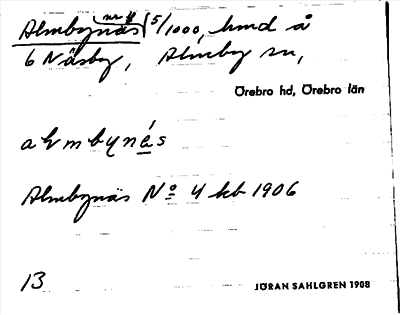 Almbynäs nr 4 5/1000, hmd å
6 Näsby, Almby sn,
Örebro hd, Örebro län
almbynäs
Almbynäs No 4 kb 1906
13
JÖRAN SAHLGREN 1908